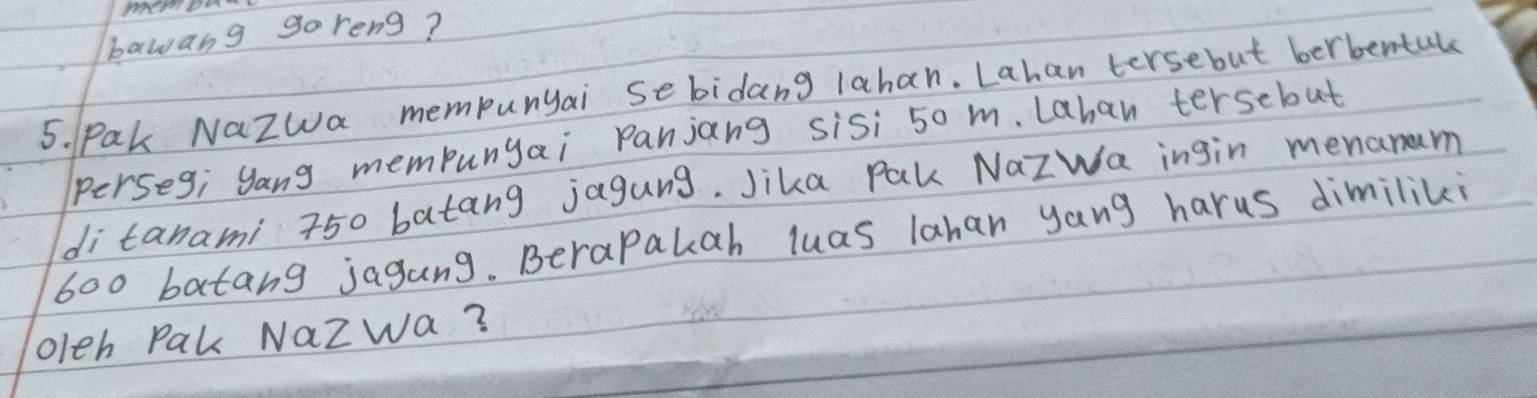 bawang goreng?
5. Pak Nazwa mempunyai sebidang lahan. Lahan tersebut berbentuk
persegi yang mempunyai panjang sisi 50 m. Lahan tersebut
ditanami 750 batang jagung. Jika Pak Nazwa ingin menanam
600 batang jagung. Berapakah luas lahan yang harus dimiliki
oleh Pak Nazwa?